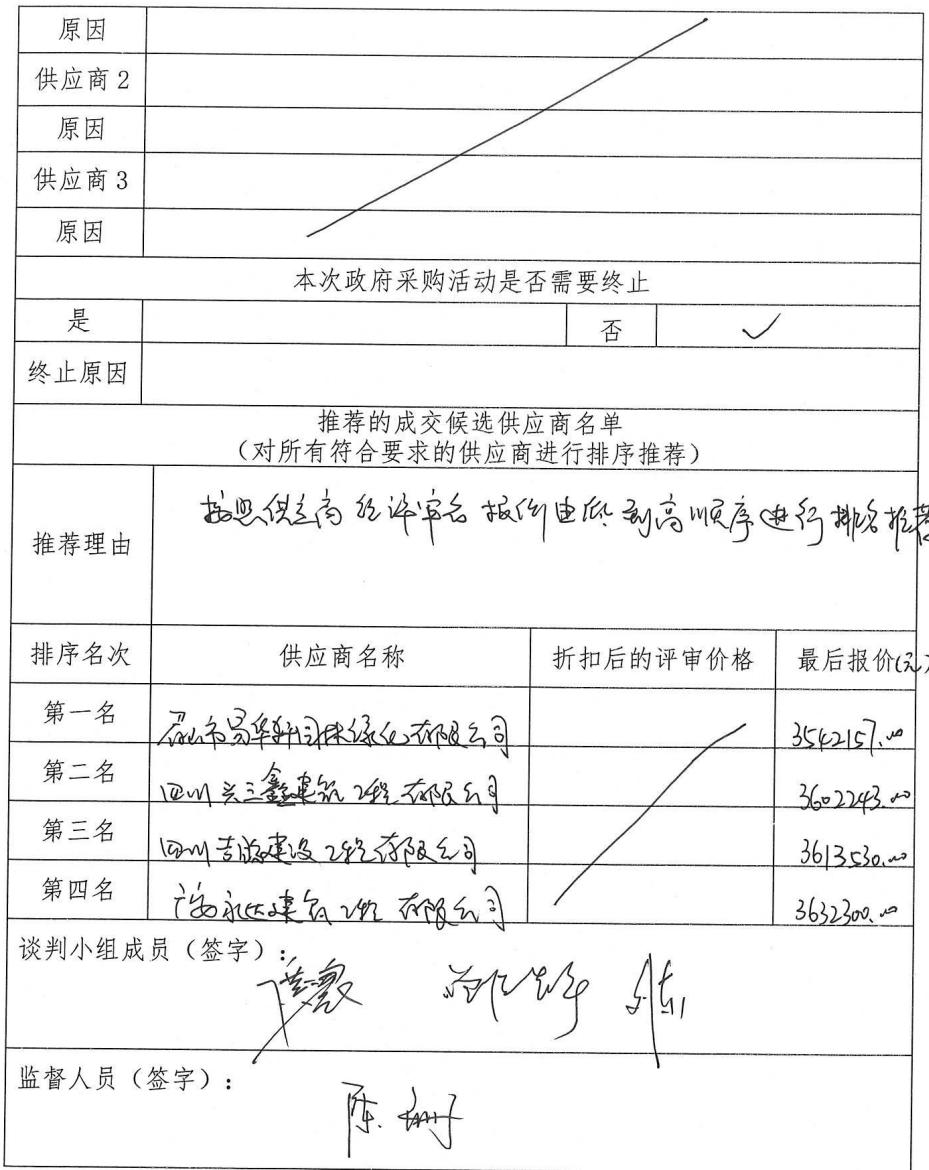 原因
供应商 2
原因
供应商 3
原因
本次政府采购活动是否需要终止
是 否 ✓
终止原因
推荐的成交候选供应商名单
（对所有符合要求的供应商进行排序推荐）
推荐理由 按照供应商经评审后报价由低到高顺序进行排名推荐
排序名次 供应商名称 折扣后的评审价格 最后报价(元)
第一名 园林绿化有限公司 3542157.00
第二名 四川兴三鑫建筑工程有限公司 3602243.00
第三名 四川建设工程有限公司 3613530.00
第四名 广安永达建筑工程有限公司 3632300.00
谈判小组成员（签字）：
监督人员（签字）：
陈